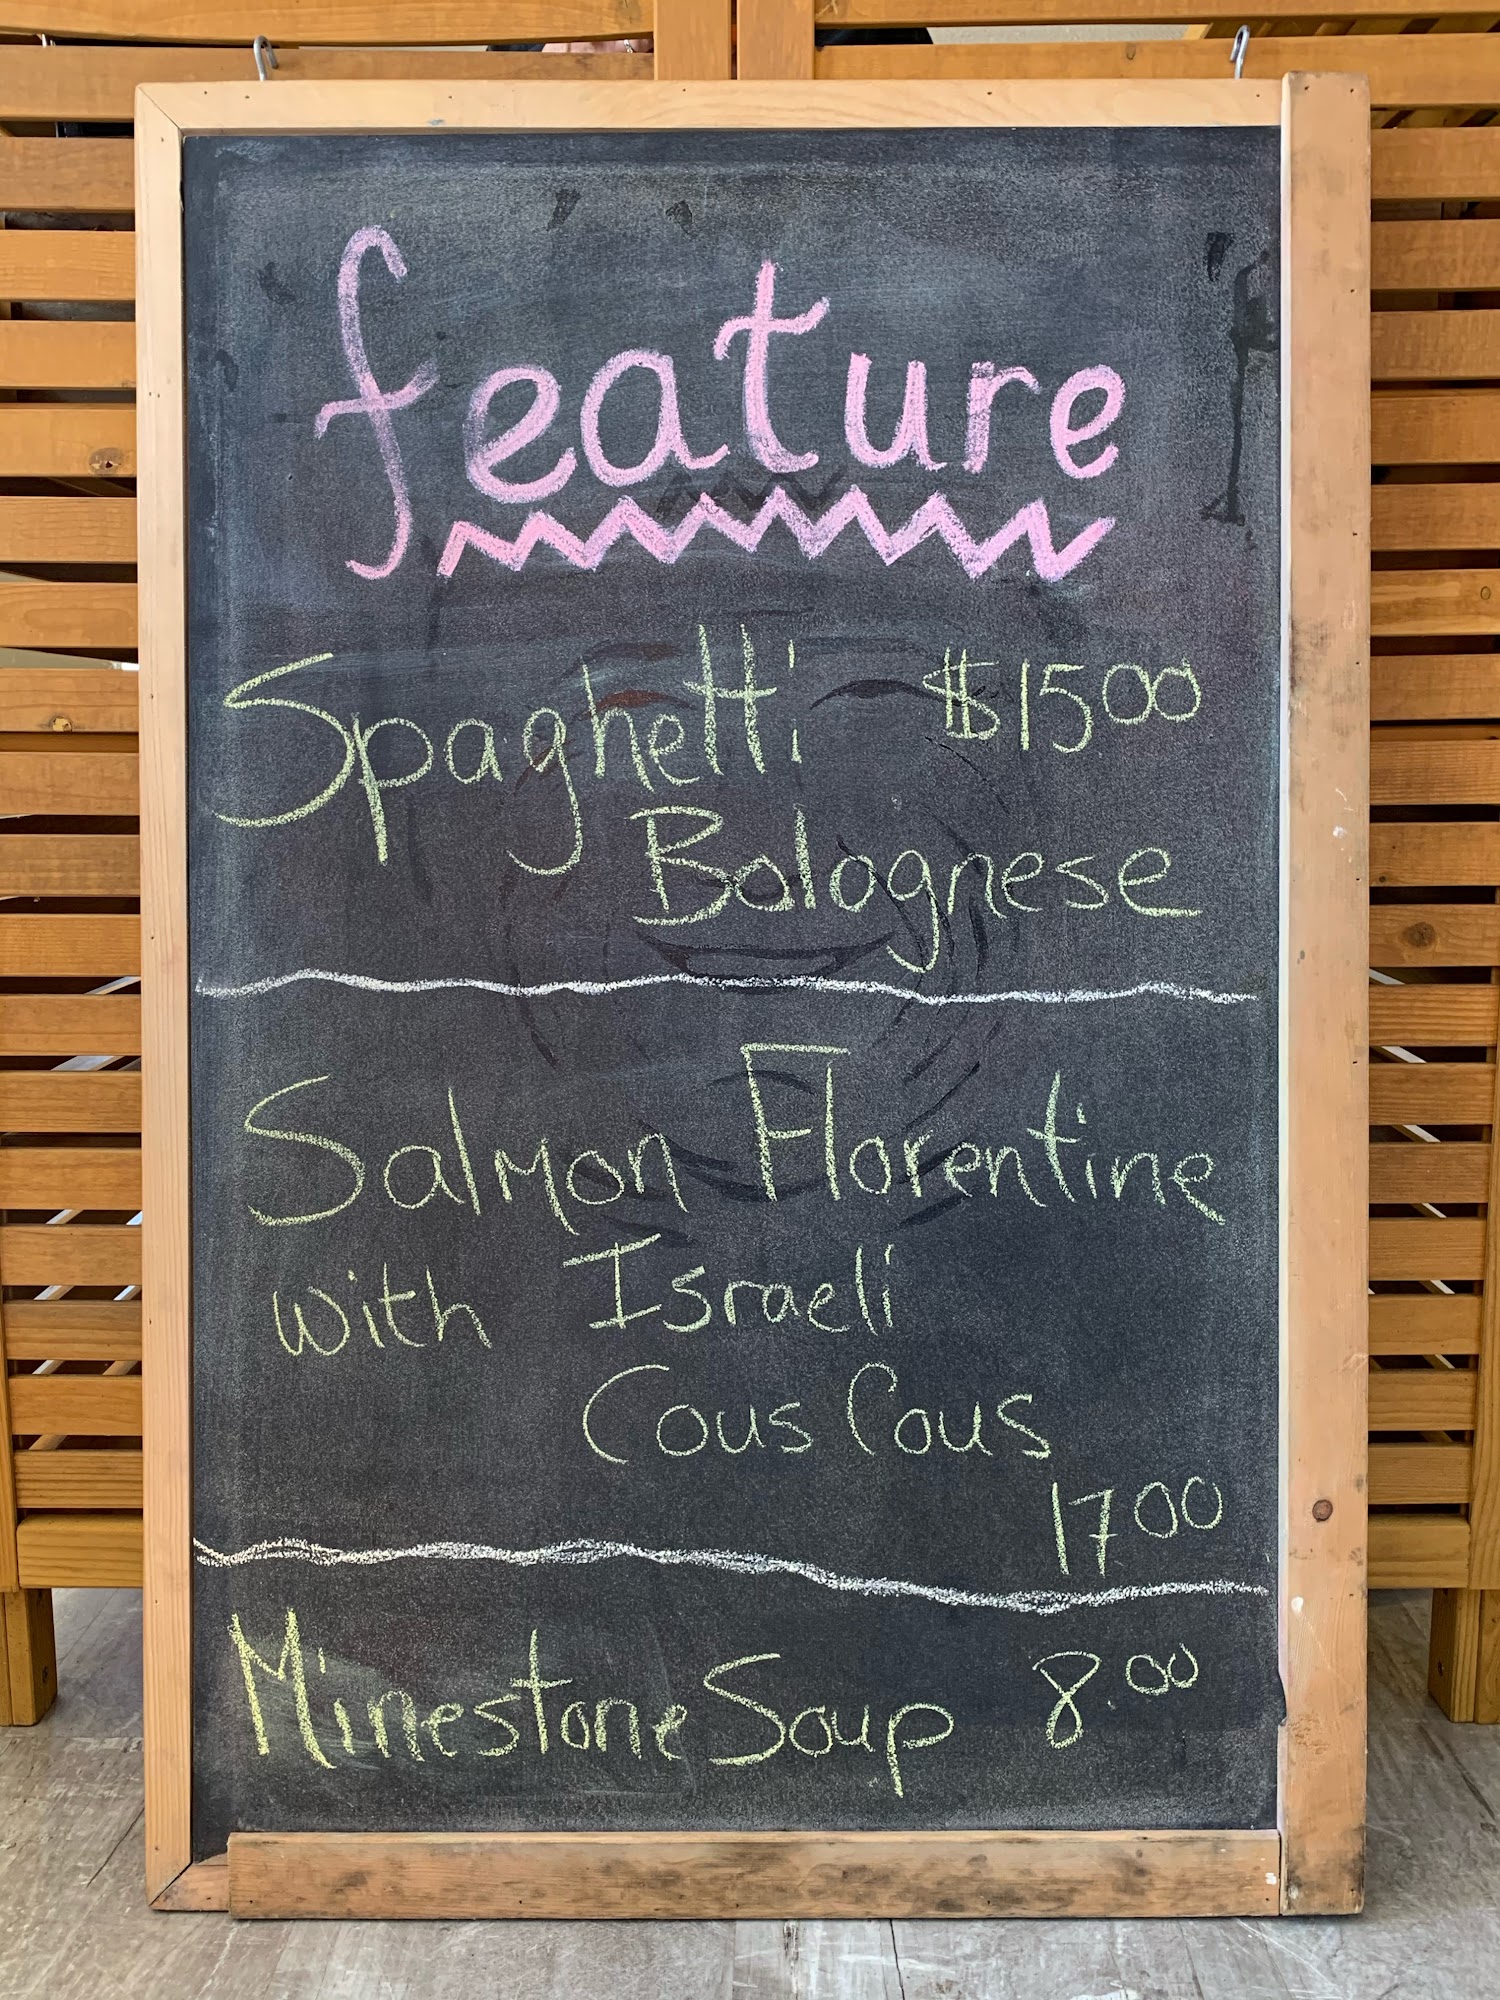 feature
Spaghetti $15.00
Bolognese
Salmon Florentine
with Israeli
Cous Cous
17.00
Minestone Soup 8.00